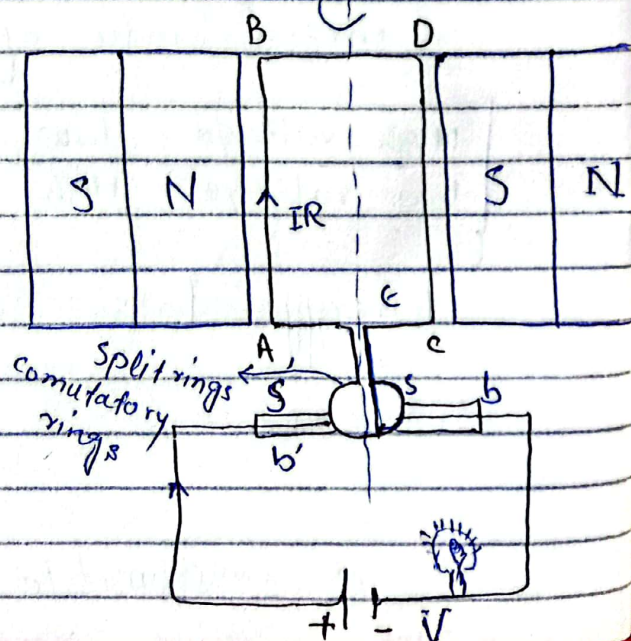 B D
S N S N
IR
ϵ
A C
Split rings
comutatory
rings
S' S b
b'
+ - V